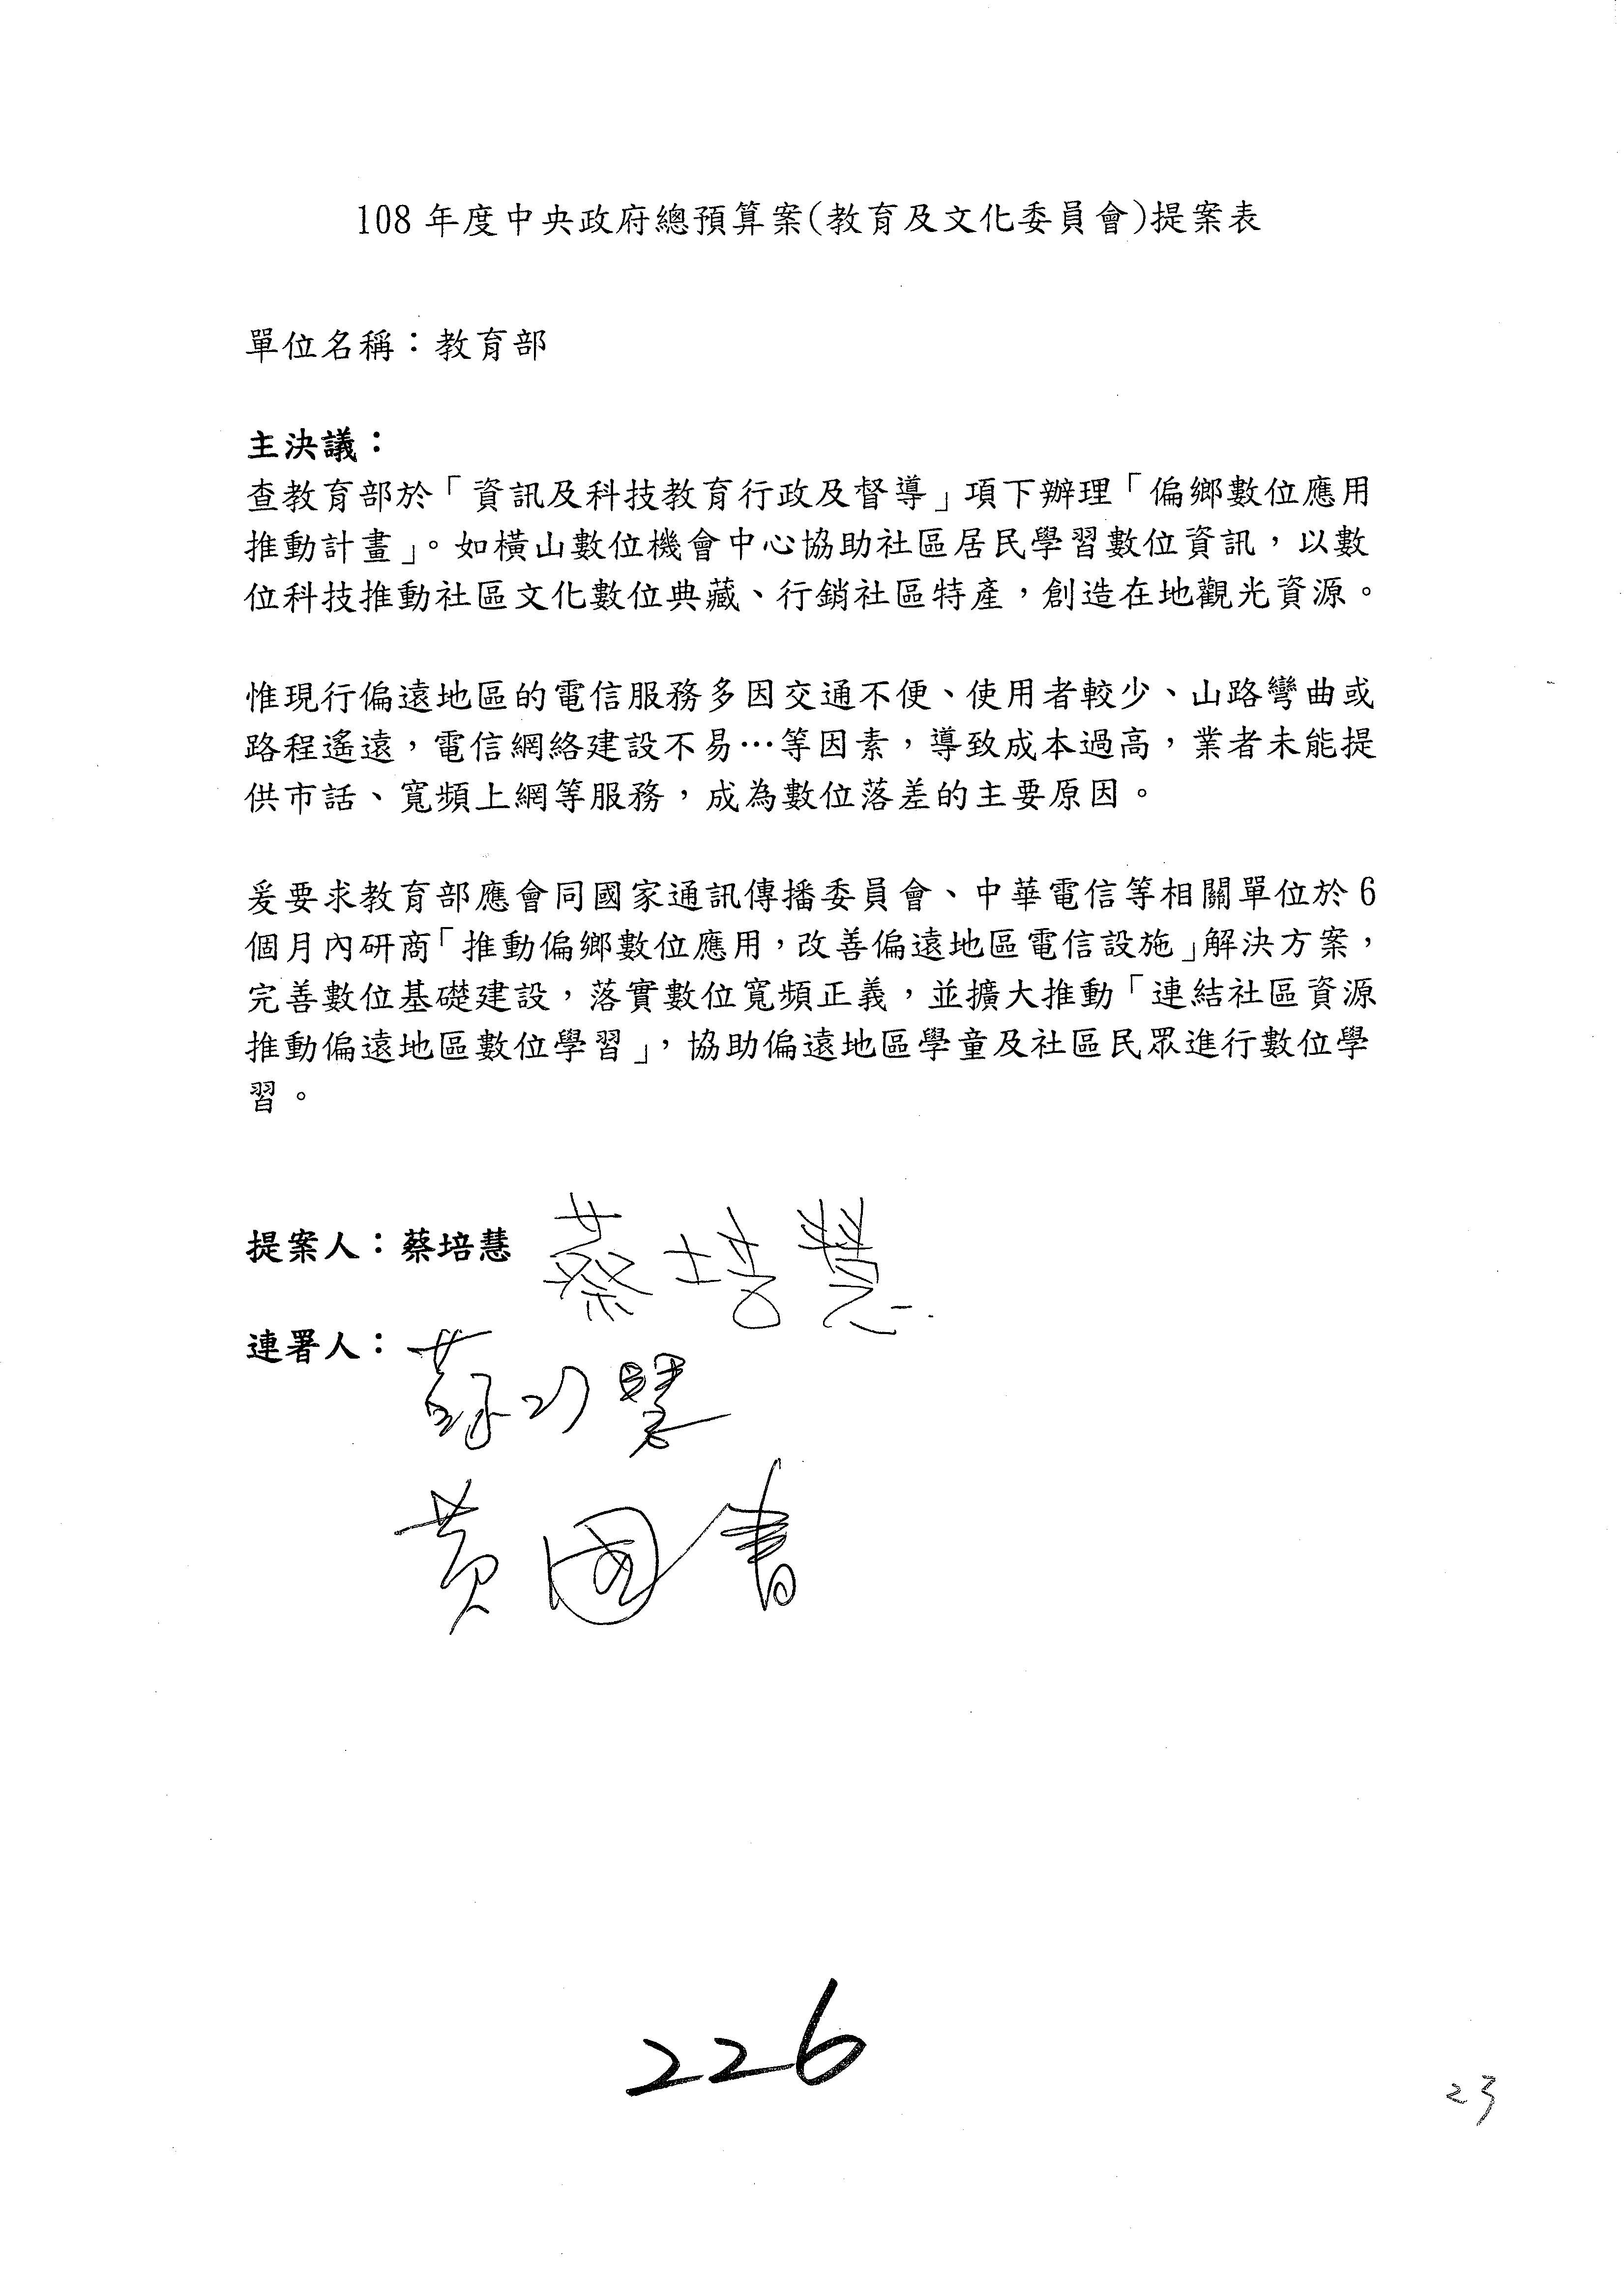 108 年度中央政府總預算案(教育及文化委員會)提案表
單位名稱：教育部
主決議：
查教育部於「資訊及科技教育行政及督導」項下辦理「偏鄉數位應用
推動計畫」。如橫山數位機會中心協助社區居民學習數位資訊，以數
位科技推動社區文化數位典藏、行銷社區特產，創造在地觀光資源。
惟現行偏遠地區的電信服務多因交通不便、使用者較少、山路彎曲或
路程遙遠，電信網絡建設不易…等因素，導致成本過高，業者未能提
供市話、寬頻上網等服務，成為數位落差的主要原因。
爰要求教育部應會同國家通訊傳播委員會、中華電信等相關單位於 6
個月內研商「推動偏鄉數位應用，改善偏遠地區電信設施」解決方案，
完善數位基礎建設，落實數位寬頻正義，並擴大推動「連結社區資源
推動偏遠地區數位學習」，協助偏遠地區學童及社區民眾進行數位學
習。
提案人：蔡培慧 蔡培慧
連署人：蘇巧慧
黃國書
226
23